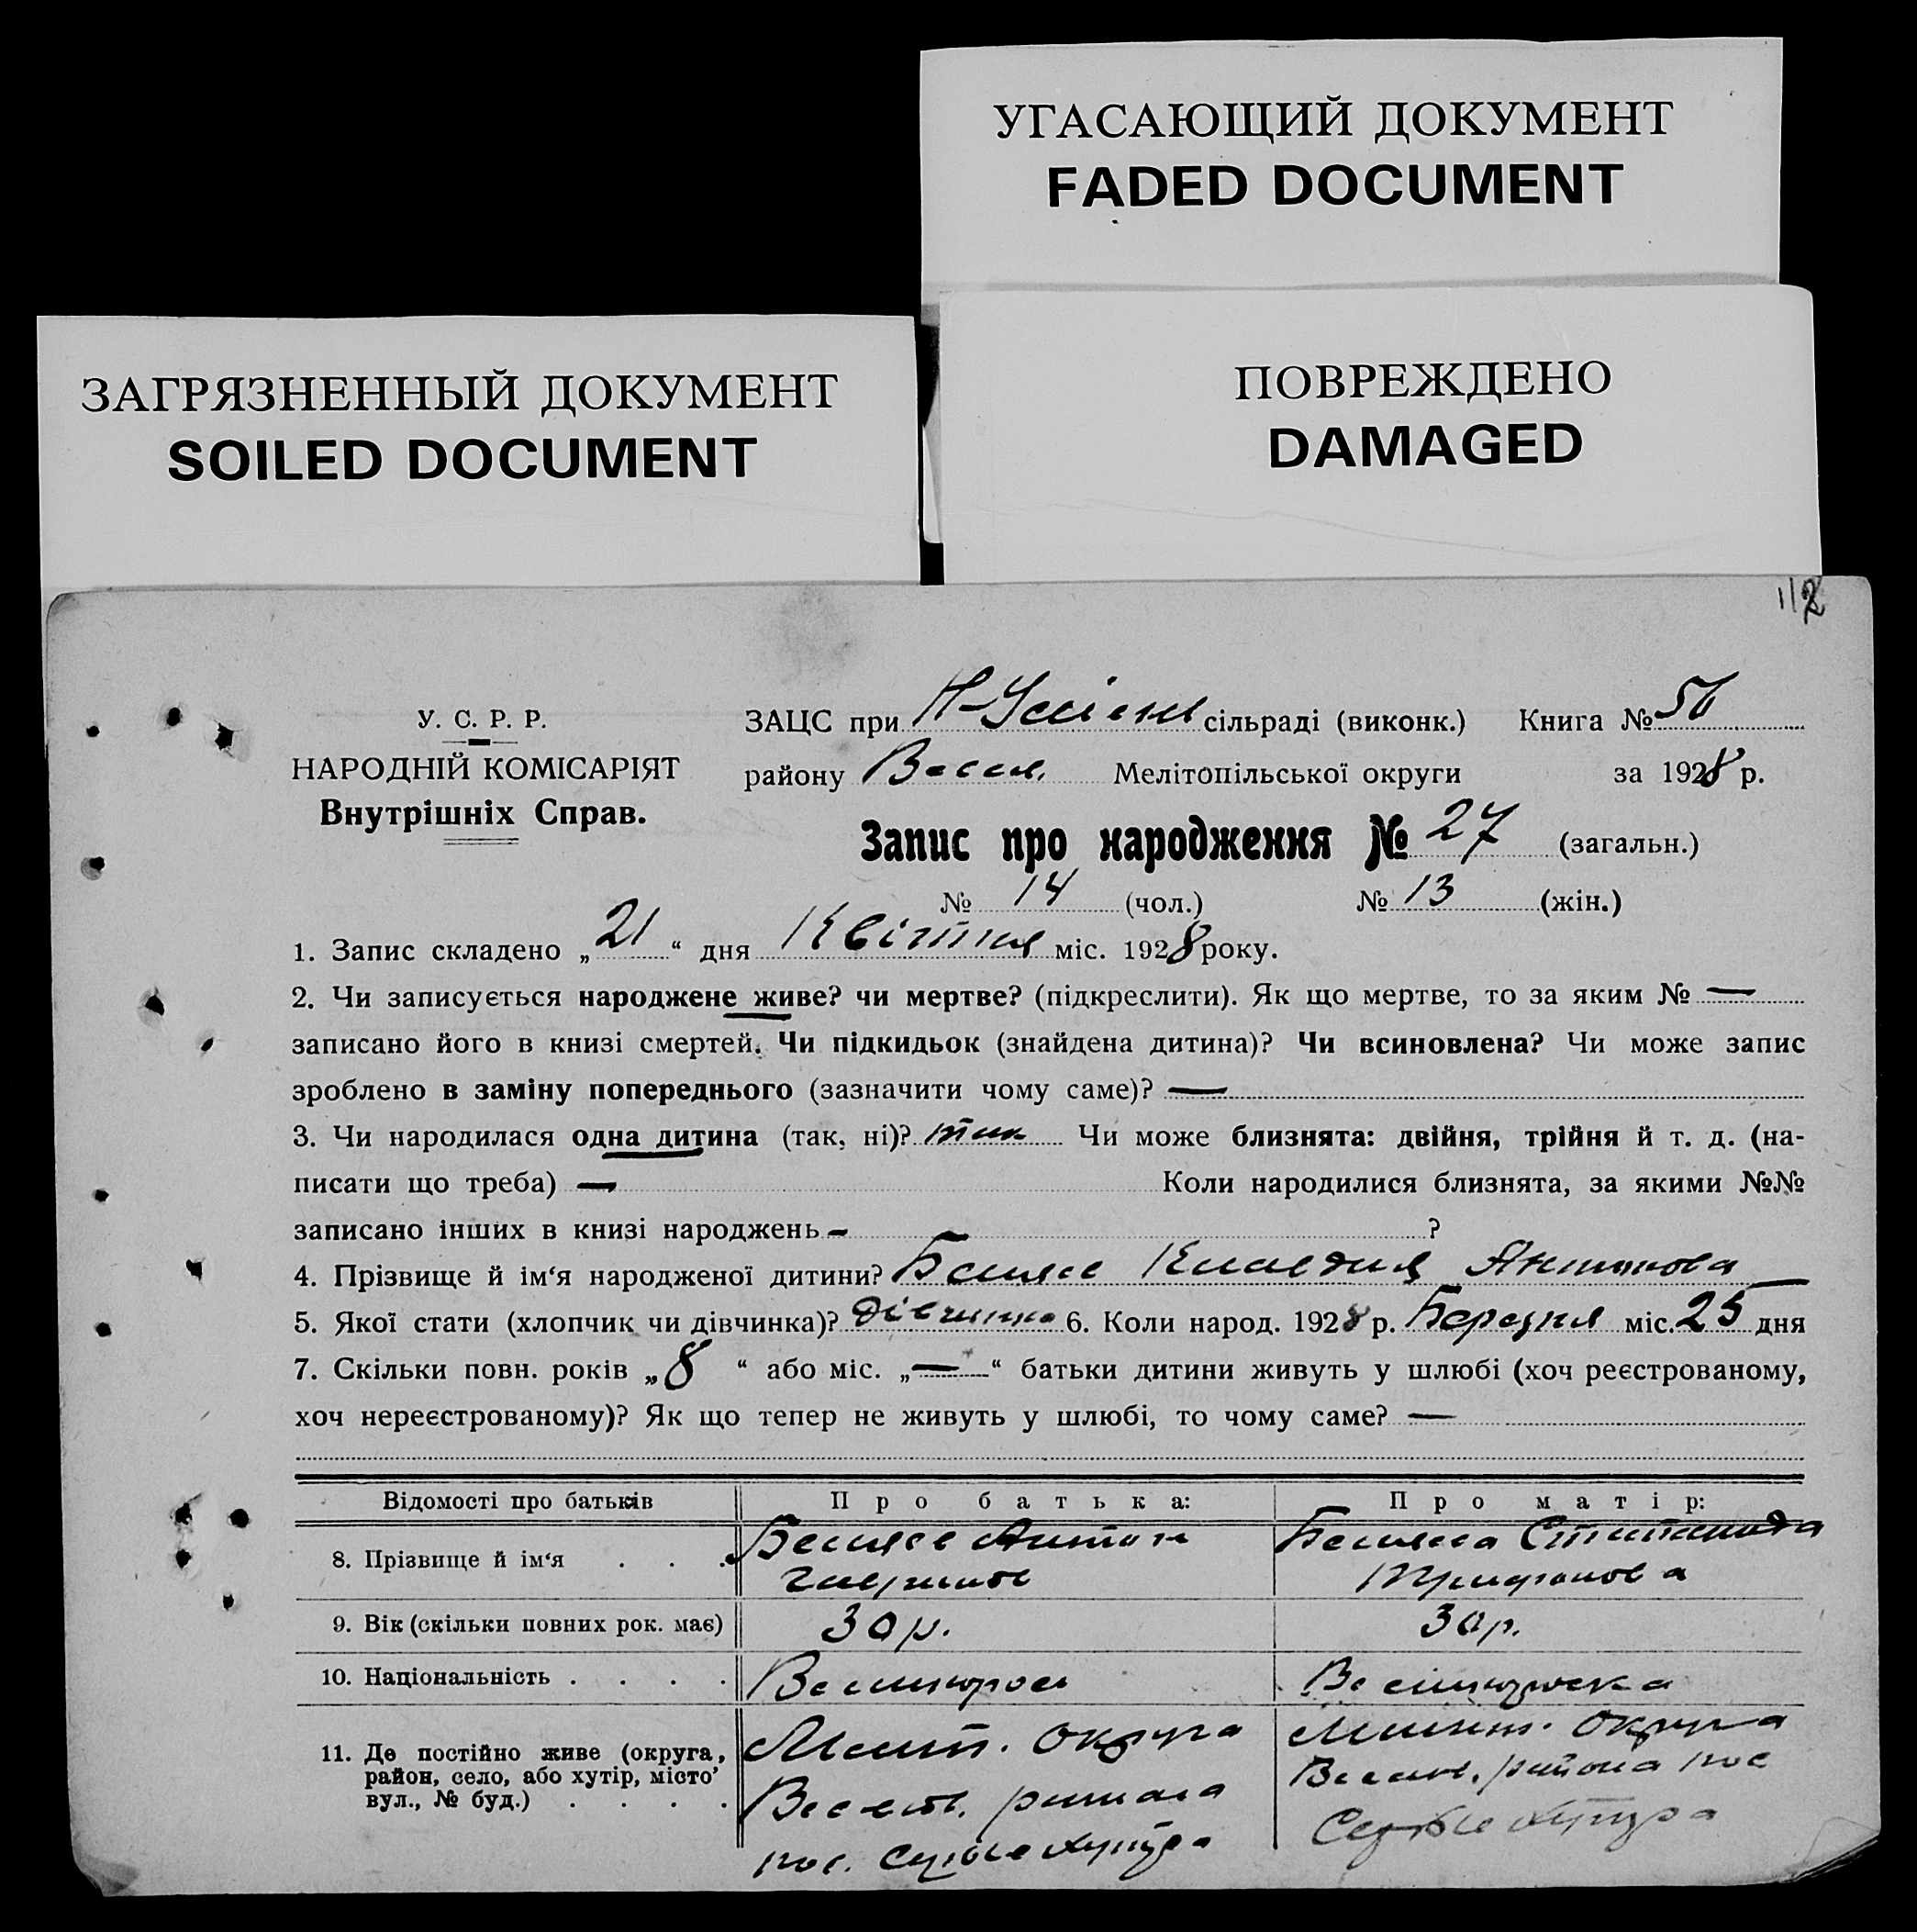 УГАСАЮЩИЙ ДОКУМЕНТ
FADED DOCUMENT
ЗАГРЯЗНЕННЫЙ ДОКУМЕНТ
SOILED DOCUMENT
ПОВРЕЖДЕНО
DAMAGED
112
У. С. Р. Р.
НАРОДНІЙ КОМІСАРІЯТ
Внутрішніх Справ.
ЗАЦС при сільраді (виконк.) Книга № 56
району Весел. Мелітопільської округи за 1928 р.
Запис про народження № 27 (загальн.)
№ 14 (чол.) № 13 (жін.)
1. Запис складено „21“ дня Квітня міс. 1928 року.
2. Чи записується народжене живе? чи мертве? (підкреслити). Як що мертве, то за яким № —
записано його в книзі смертей. Чи підкидьок (знайдена дитина)? Чи всиновлена? Чи може запис
зроблено в заміну попереднього (зазначити чому саме)? —
3. Чи народилася одна дитина (так, ні)? так Чи може близнята: двійня, трійня й т. д. (на-
писати що треба) — Коли народилися близнята, за якими №№
записано інших в книзі народжень - ?
4. Прізвище й ім‘я народженої дитини? Клавдия Антонова
5. Якої стати (хлопчик чи дівчинка)? дівчинка 6. Коли народ. 1928 р. Березня міс. 25 дня
7. Скільки повн. років „8“ або міс. „—“ батьки дитини живуть у шлюбі (хоч реєстрованому,
хоч нереєстрованому)? Як що тепер не живуть у шлюбі, то чому саме? —
Відомості про батьків Про батька: Про матір:
8. Прізвище й ім‘я . . . Антон
Гаврилов
Степанида
Трифонова
9. Вік (скільки повних рок. має) 30 р. 30 р.
10. Національність . . . . Великорос Великоруска
11. Де постійно живе (округа,
район, село, або хутір, місто’
вул., № буд.) . . . .
Меліт. округа
Весел. района
пос.
Меліт. округа
Весел. района пос